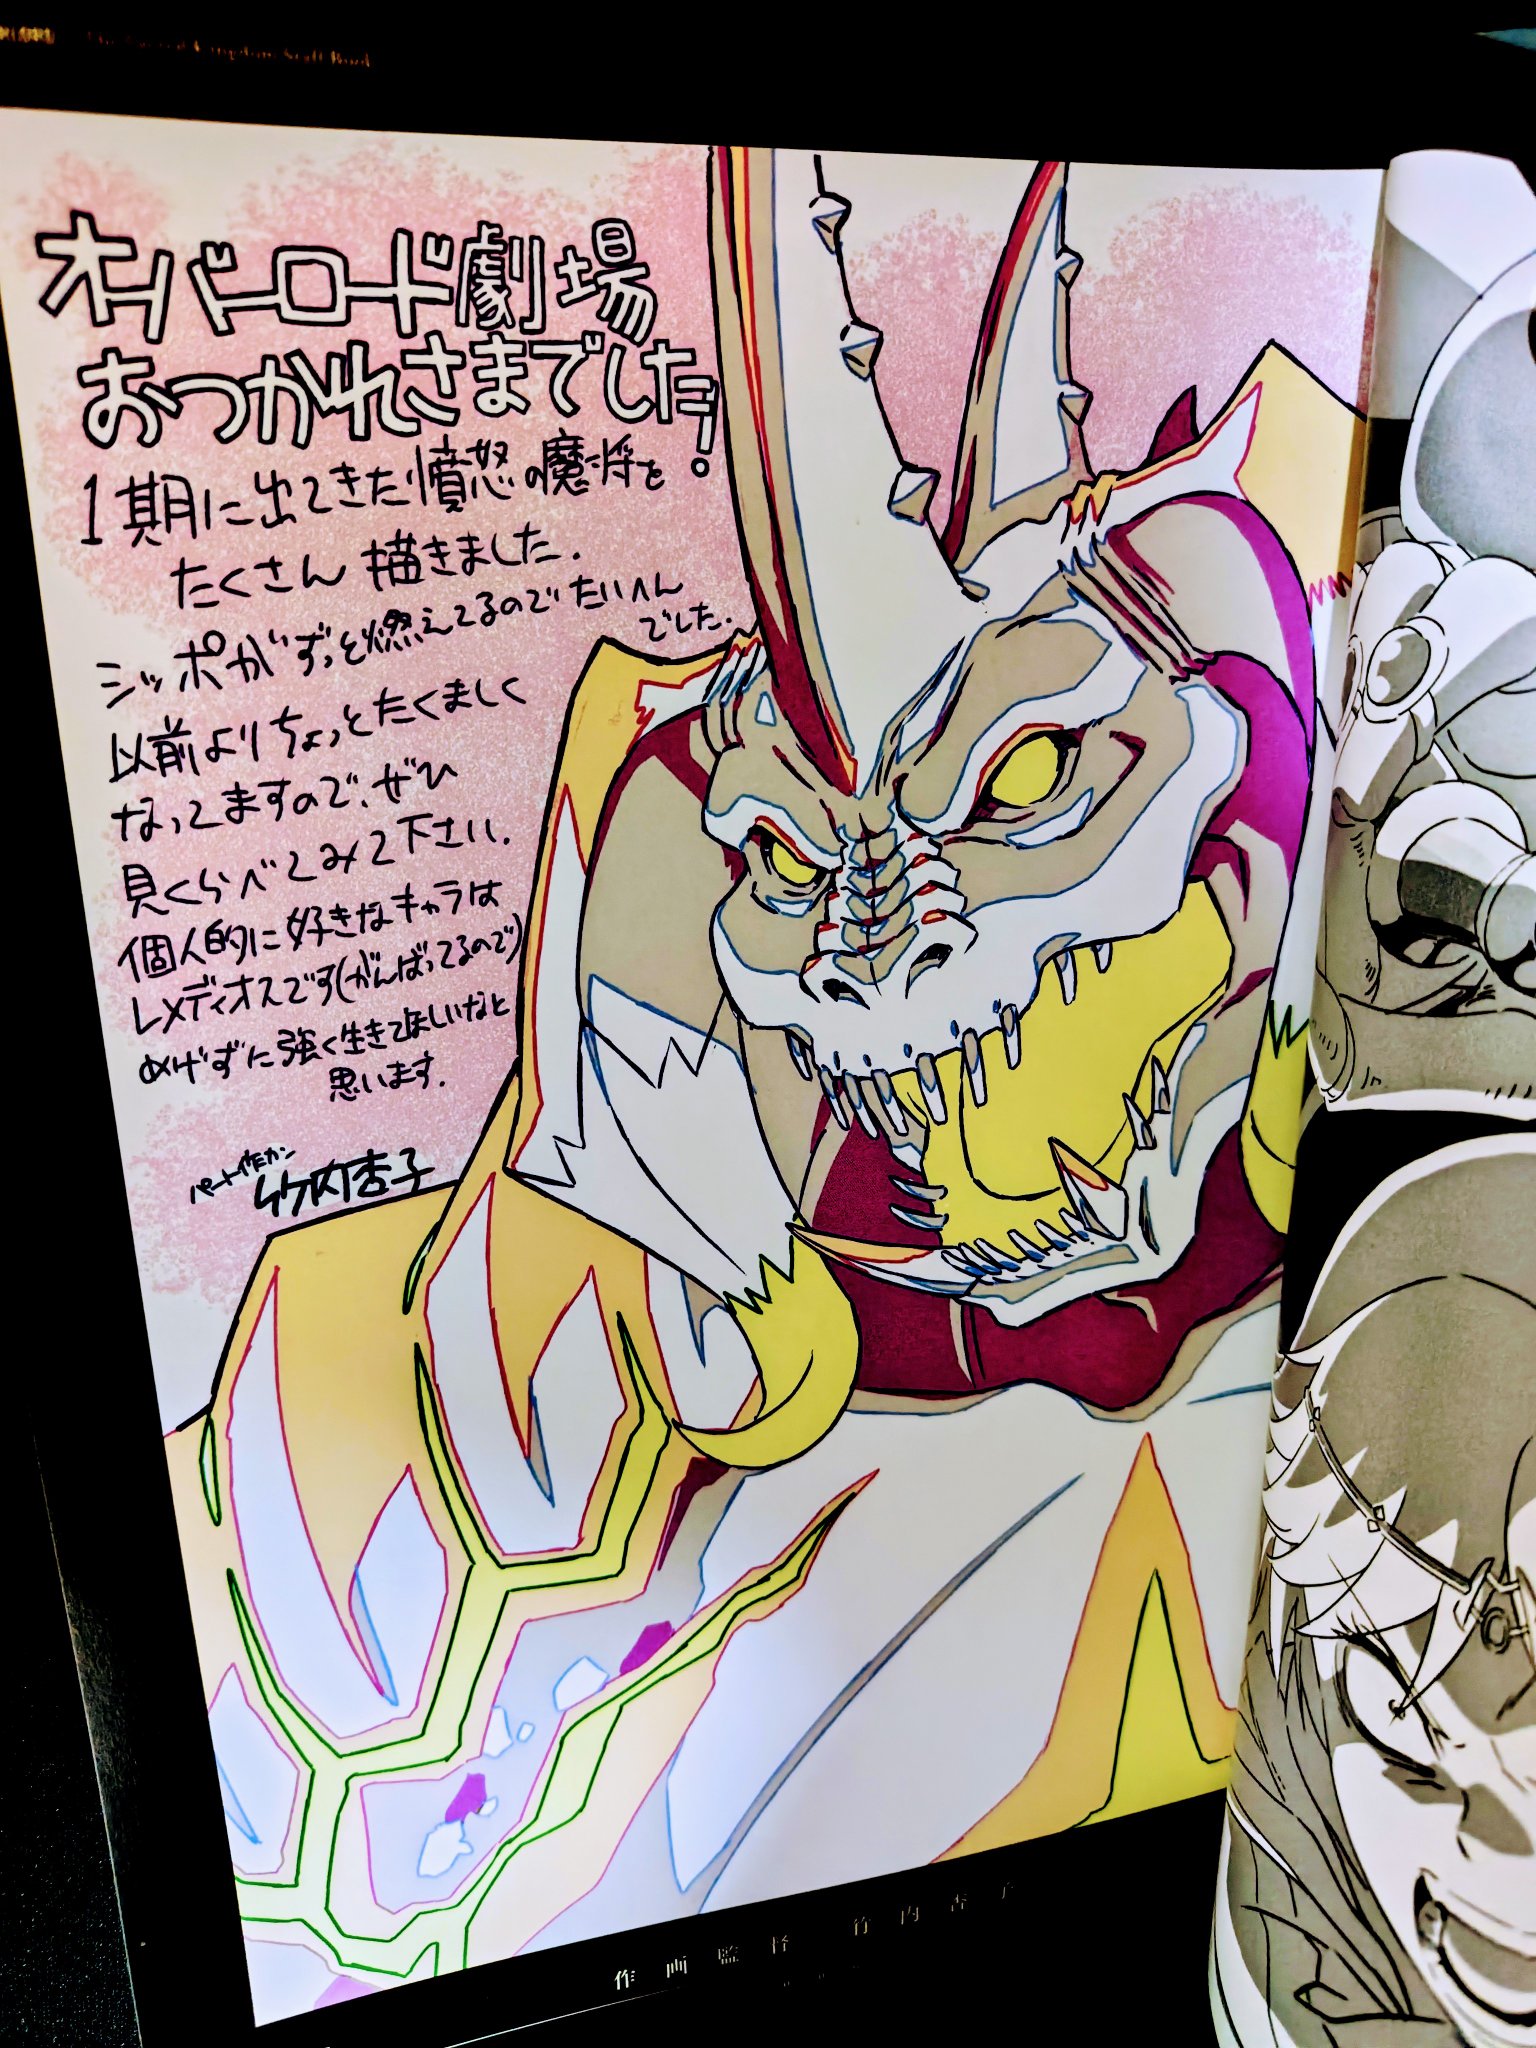 The Sacred Kingdom Staff Book
オーバーロード劇場
おつかれさまでした!
1期に出てきた憤怒の魔将を
たくさん描きました.
シッポがずっと燃えてるのでたいへん
でした.
以前よりちょっとたくましく
なってますので、ぜひ
見くらべてみて下さい.
個人的に好きなキャラは
レメディオスです(がんばってるので)
めげずに強く生きてほしいなと
思います.
パート作カン
竹内杏子
作画監督 竹内杏子